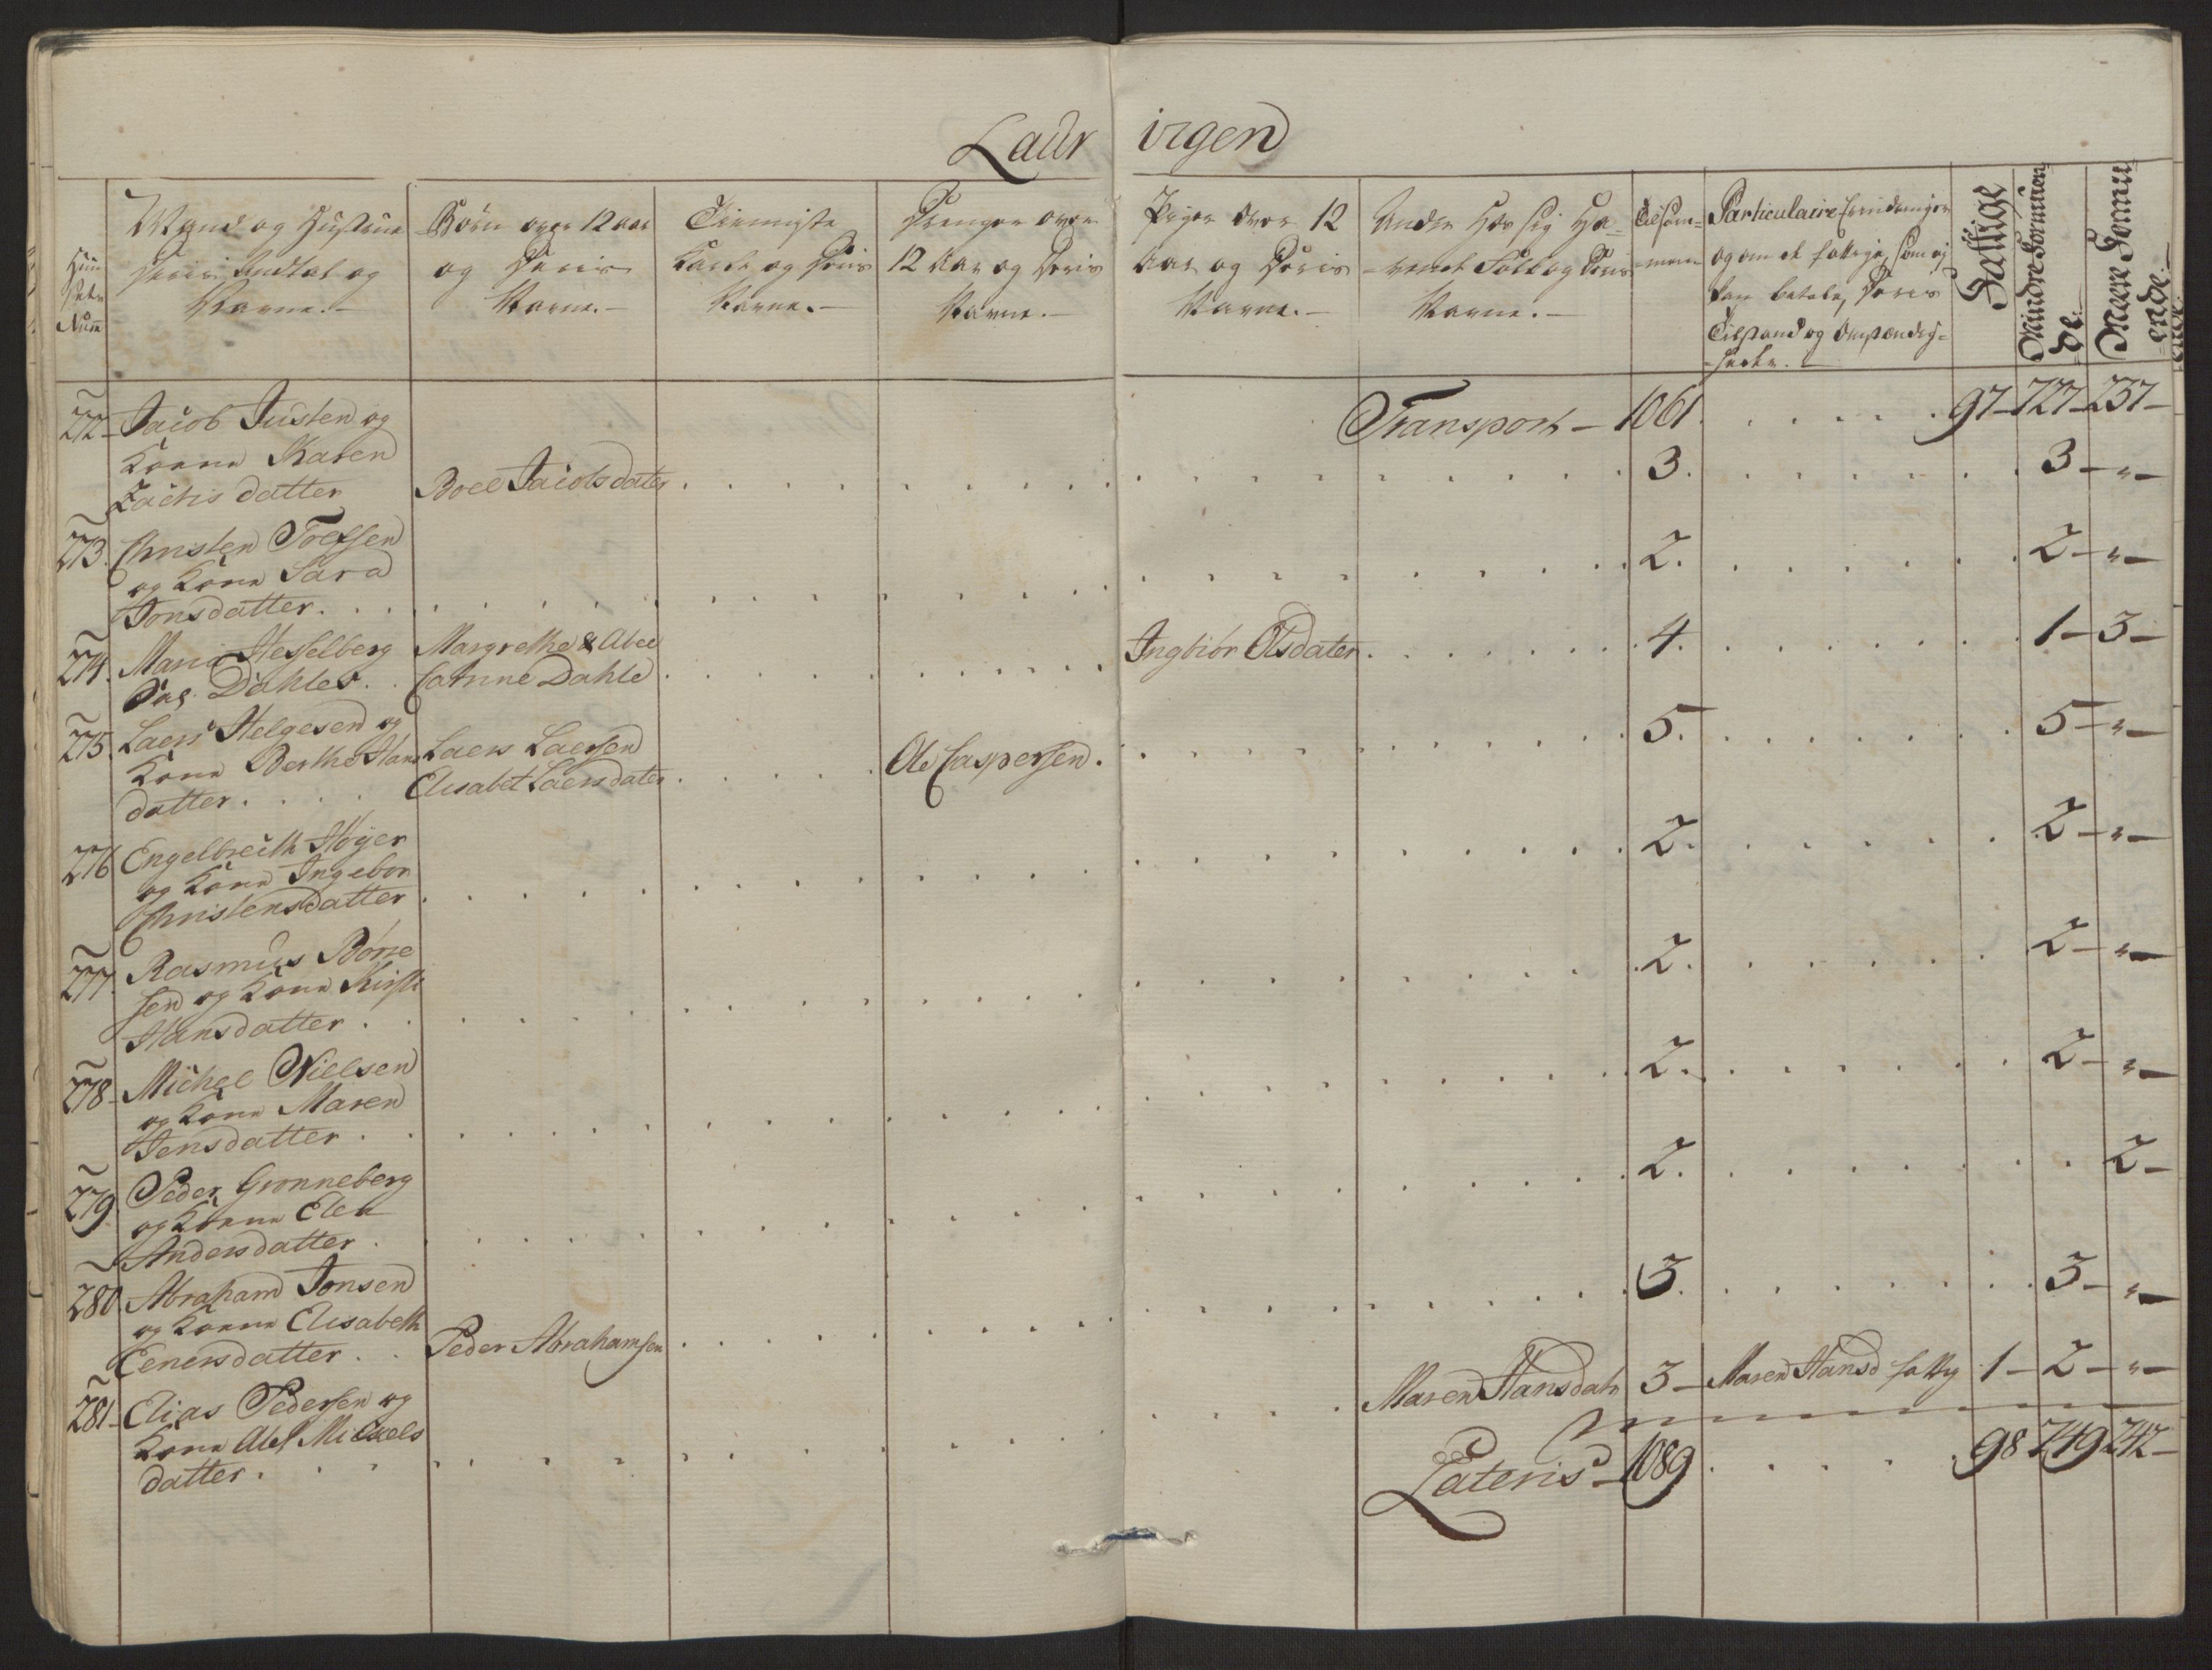 Laurvigen
Huusets Num̄
Mand og Hustrue
Deris Andtal og
Navne.
Børn over 12 aar
og Deris
Navne.
Tienniste
Karle og Deris
Navne.
Drenger over
12 Aar og Deris
Navne.
Piger over 12
Aar og Deris
Navne.
Andre Hos sig Ha-
vende Folk og Deris
Navne.
Tilsam-
men
Particulaire Erindringer
og om de fattige, som ej
kan betale, Deris
Tilstand og Omstændig-
heder.
Fattige
Mindre Formuen
de
Meere Formu
ende
Transport - 1061. 97 - 727 - 237 -
272 - Jacob Justen og
Konne Karen
Zachis datter
Boel Jacobsdater
3. 3 - " -
273. Christen Toefsen
og Kone Sara
Jonsdatter.
2. 2 - " -
274. Maria Hesselberg
Sal. Dahles.
Margrethe & Abel
Catrine Dahle
Ingbiør Olsdater
4. 1 - 3 -
275. Laers Helgesen og
Kone Berthe Hans
datter.
Laers Laersen
Elisabet Laersdater
Ole Caspersen.
5. 5 - " -
276 Engelbreith Høyer
og Kone Ingebor
Christensdatter
2. 2 - " -
277. Rasmus Børre
sen og Kone Kirsti
Hansdatter.
2. 2 - " -
278 - Michel Nielsen
og Kone Maren
Jensdatter.
2. 2 - " -
279. Peder Grønneberg
og Konne Elen
Andersdatter.
2. 2 -
280. Abraham Jonsen
og Konne Elisabeth
Eenersdatter.
Peder Abrahamsen
3. 3 - " -
281 - Elias Pedersen og
Kone Abel Mickels
datter.
Maren Hansdatr 3 - Maren Hansd fattig 1 - 2 - " -
Lateris - 1089 98 749 242 -